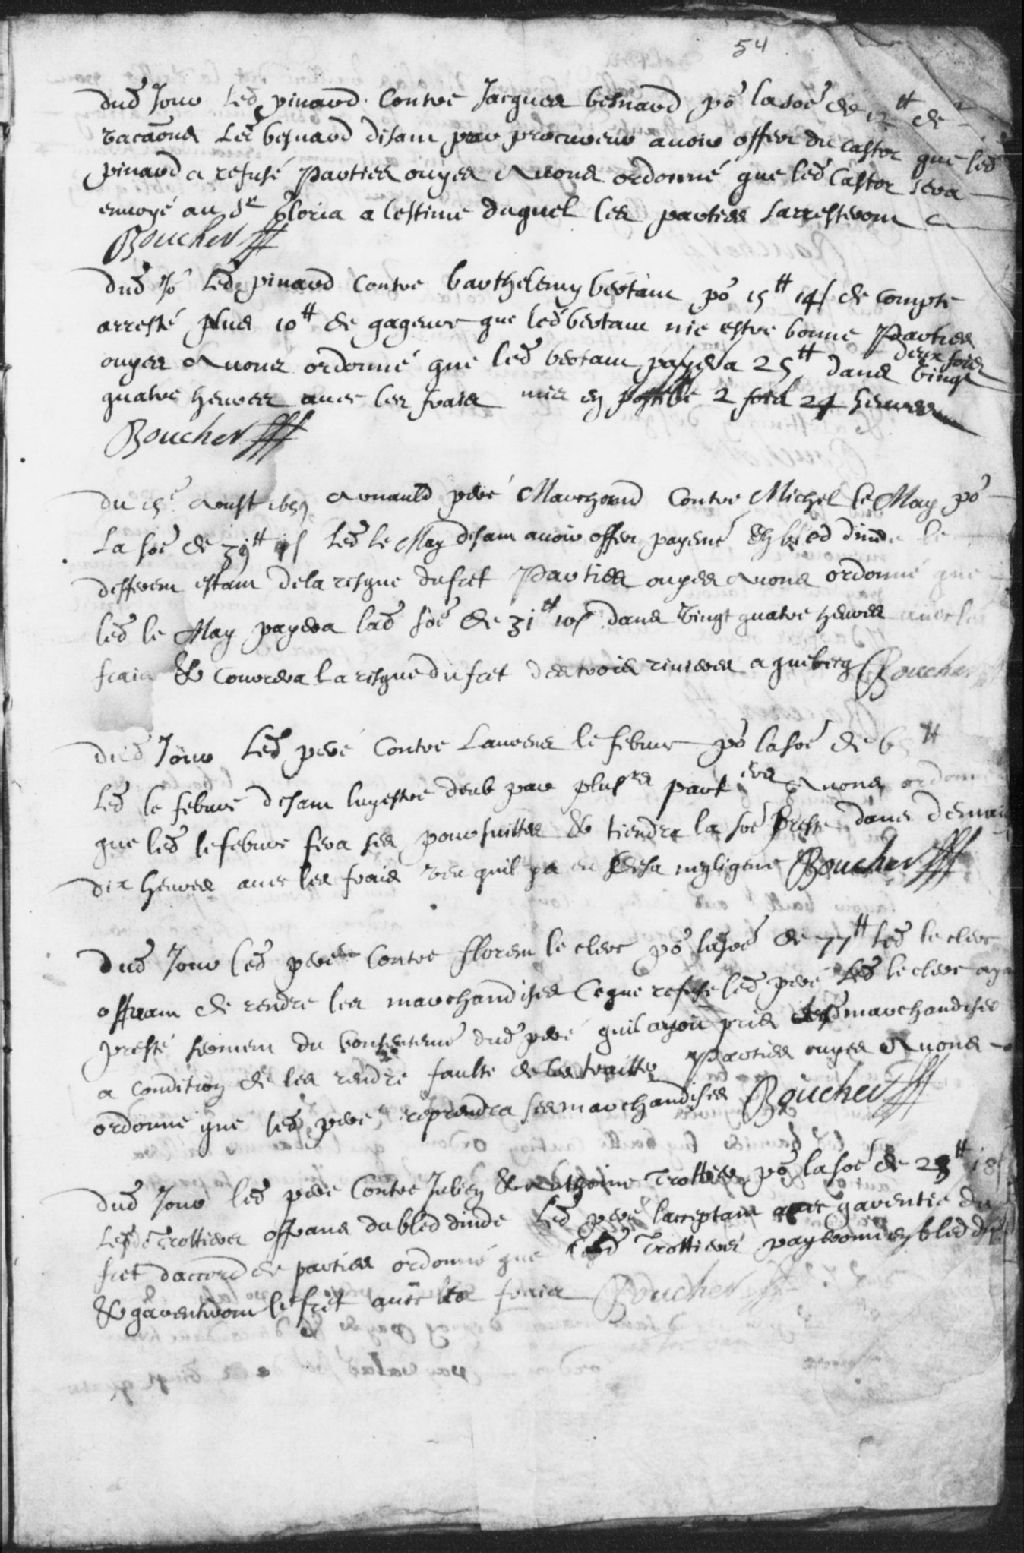 54
Dud Jour Led pinard Contre Jacques besnard po la soe de 12 ᵗᵗ de
vacaons Led besnard disant par procureur avoir offert du castor que led
pinard a refusé Parties ouyes Avons ordonné que led Castor sera
envoyé au Sr gloria a lestime duquel les parties sarresteront
Boucher
Dud Jo Led pinard Contre barthelemy bertain po 15 ᵗᵗ 14 s de compte
arresté plus 10 ᵗᵗ de gageure que led bertain nie estre bonne Parties
ouyes Avons ordonné que led bertain payera 25 ᵗᵗ dans deux fois vingt
quatre heures avec les frais mis en 2 fois 24 heures
Boucher
du 15e Aoust 1659 Arnauld peré Marchand Contre Michel le May po
La soe de 39 ᵗᵗ Led le May disant avoir offert payemt En bled dinde le
different estant de la risque du fret Parties ouyes Avons ordonné que
led le May payera lad soe de 31 ᵗᵗ 10 s dans vingt quatre heures avec les
frais & Courera la risque du fret des trois rivieres a quebecq Boucher
dud Jour Led peré Contre Laurens le febure po la soe de
Led le febure disant luy estre deub par plusrs part ers Avons ordonné
que led le febure fera ses poursuittes & tiendra la soe preste dans demain
dix heures avec les frais veu quil ya eu de sa negligence Boucher
Dud Jour led peré Contre fflorent le clerc po la soe de 77 ᵗᵗ Led le clerc
offrant de rendre les marchandises Ce que refuse led peré Led le clerc aya
presté serment du consentemt dud peré quil avoit pris lesd marchandises
a condition de les rendre faulte de les traitter Parties ouyes Avons
ordonné que led peré reprendra ses marchandises Boucher
Dud Jour led peré Contre Julien & Anthoine Trottier po la soe de 28 ᵗᵗ 18 s
Lesd Trottiers offrans du bled dinde Led peré lacceptant avec garentie du
fret daccord de parties ordonné que lesd Trottiers payeront en bled d
& garentiront le fret avec les frais Boucher